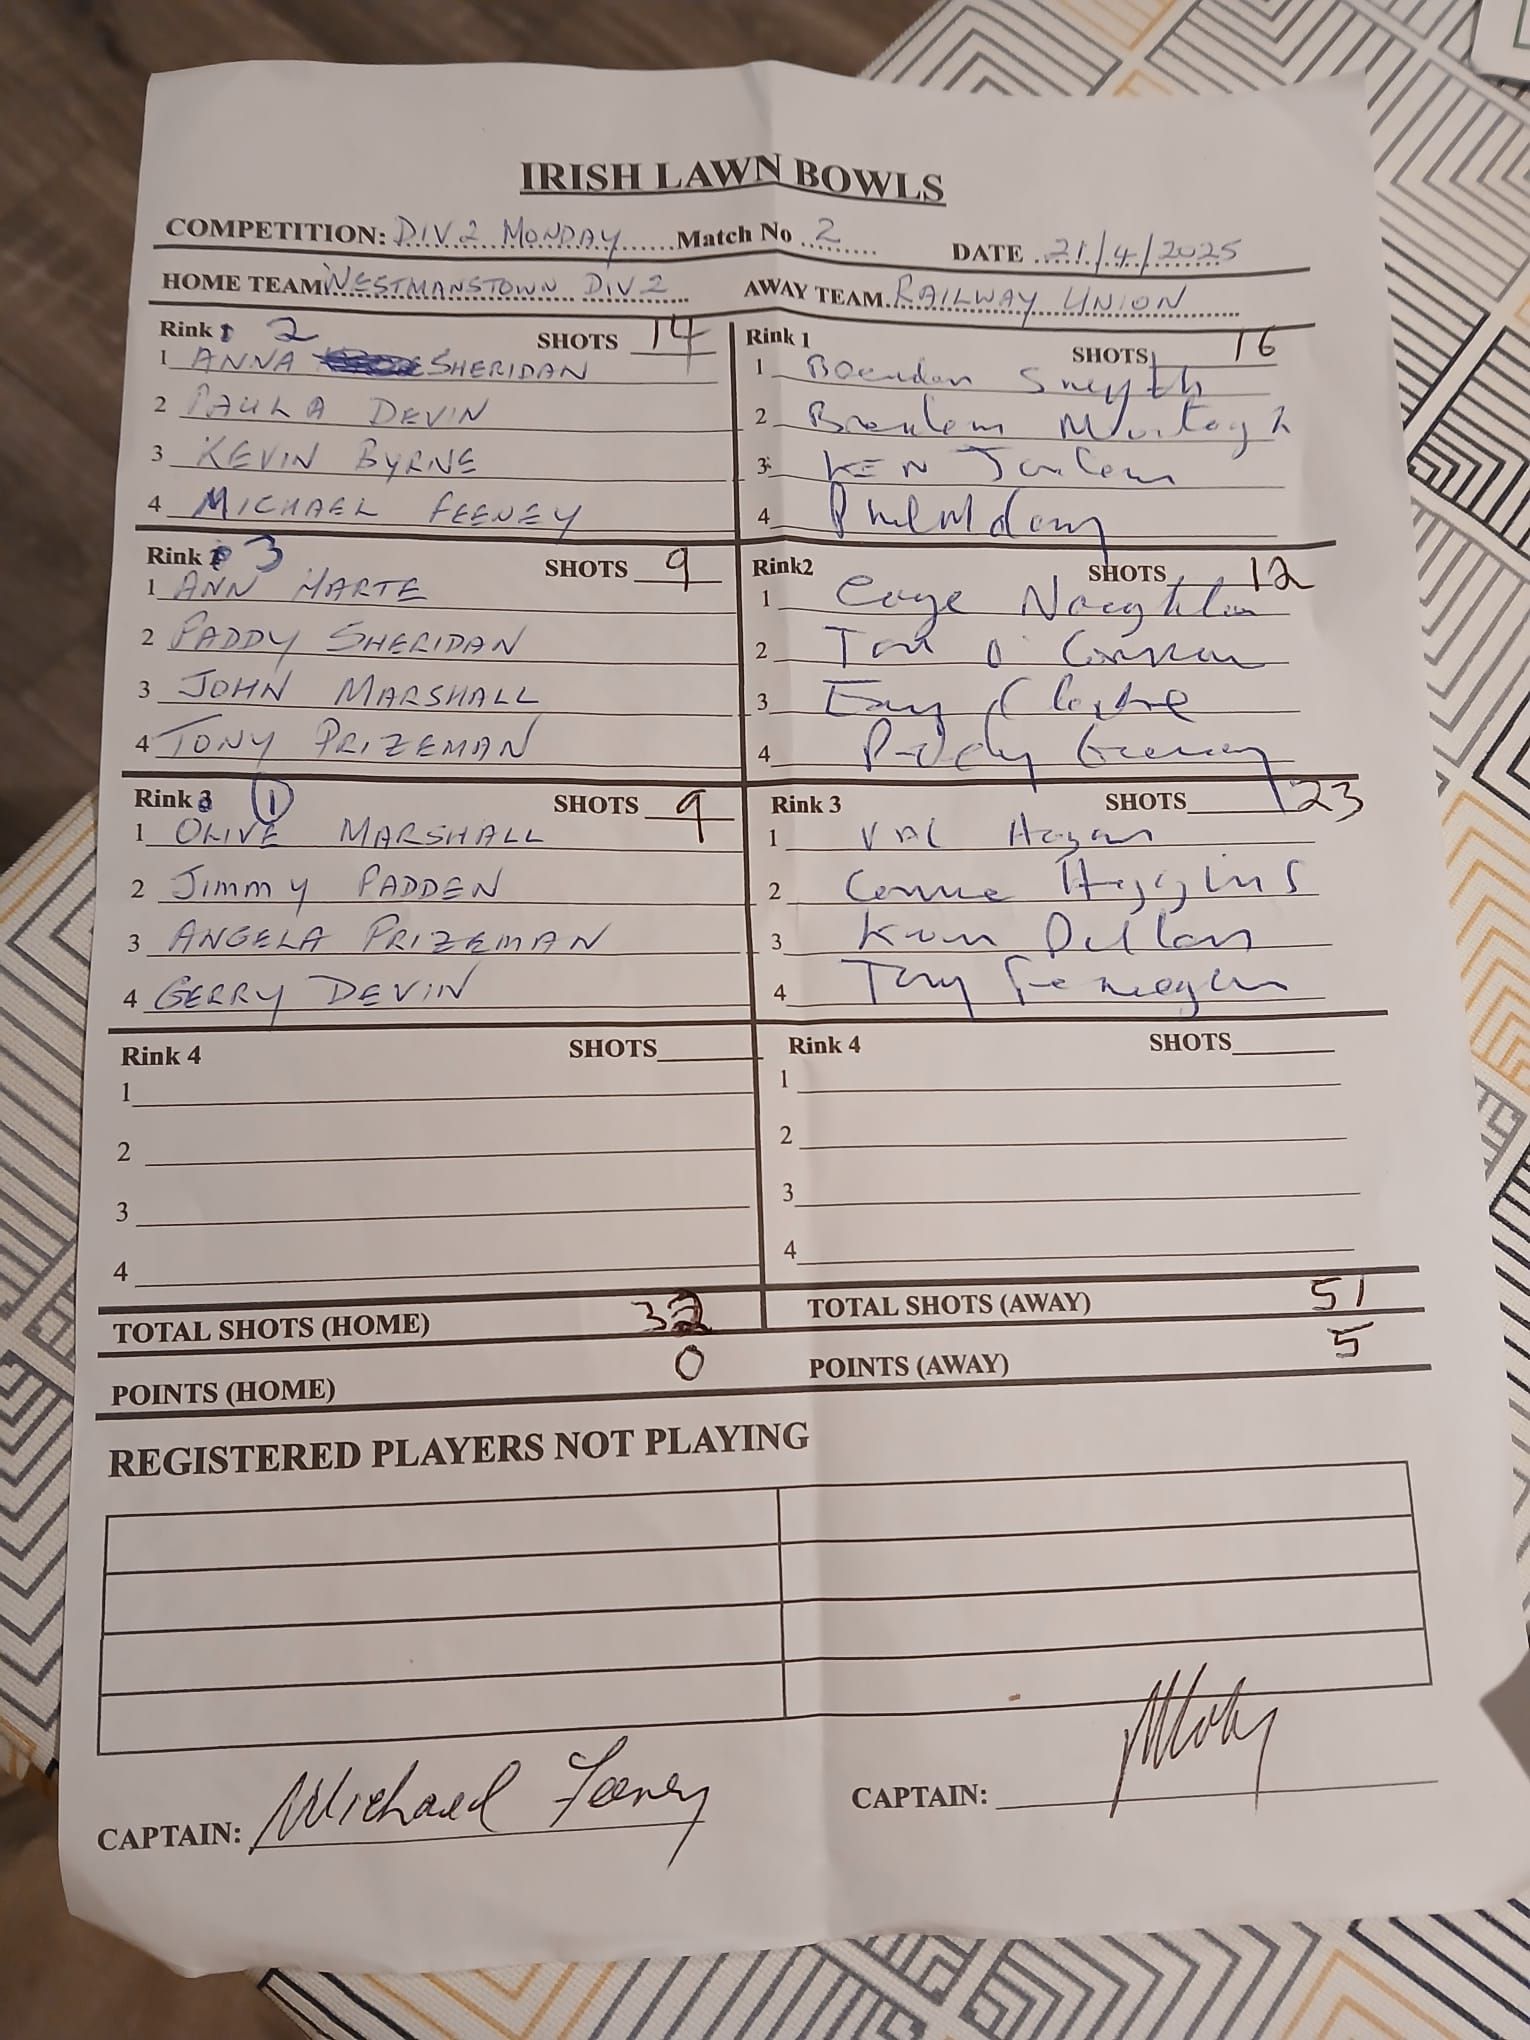 IRISH LAWN BOWLS
COMPETITION: DIV 2 MONDAY Match No 2 DATE 21/4/2025
HOME TEAM WESTMANSTOWN DIV 2 AWAY TEAM RAILWAY UNION
Rink 2 SHOTS 14
1 ANNA SHERIDAN
2 PAULA DEVIN
3 KEVIN BYRNE
4 MICHAEL FEENEY
Rink 1 SHOTS 16
1 Brendan Smyth
2 Murtagh
3 KEN
4
Rink 3 SHOTS 9
1 ANN HARTE
2 PADDY SHERIDAN
3 JOHN MARSHALL
4 TONY PRIZEMAN
Rink2 SHOTS 12
1 Naughton
2 Tom O'Connor
3 Clarke
4 Paddy
Rink 3 1 SHOTS 9
1 OLIVE MARSHALL
2 Jimmy PADDEN
3 ANGELA PRIZEMAN
4 GERRY DEVIN
Rink 3 SHOTS 23
1 VAL Hogan
2 Higgins
3 Dillon
4 Tony
Rink 4 SHOTS
1
2
3
4
Rink 4 SHOTS
1
2
3
4
TOTAL SHOTS (HOME) 32 TOTAL SHOTS (AWAY) 51
POINTS (HOME) 0 POINTS (AWAY) 5
REGISTERED PLAYERS NOT PLAYING
CAPTAIN: Michael Feeney CAPTAIN: